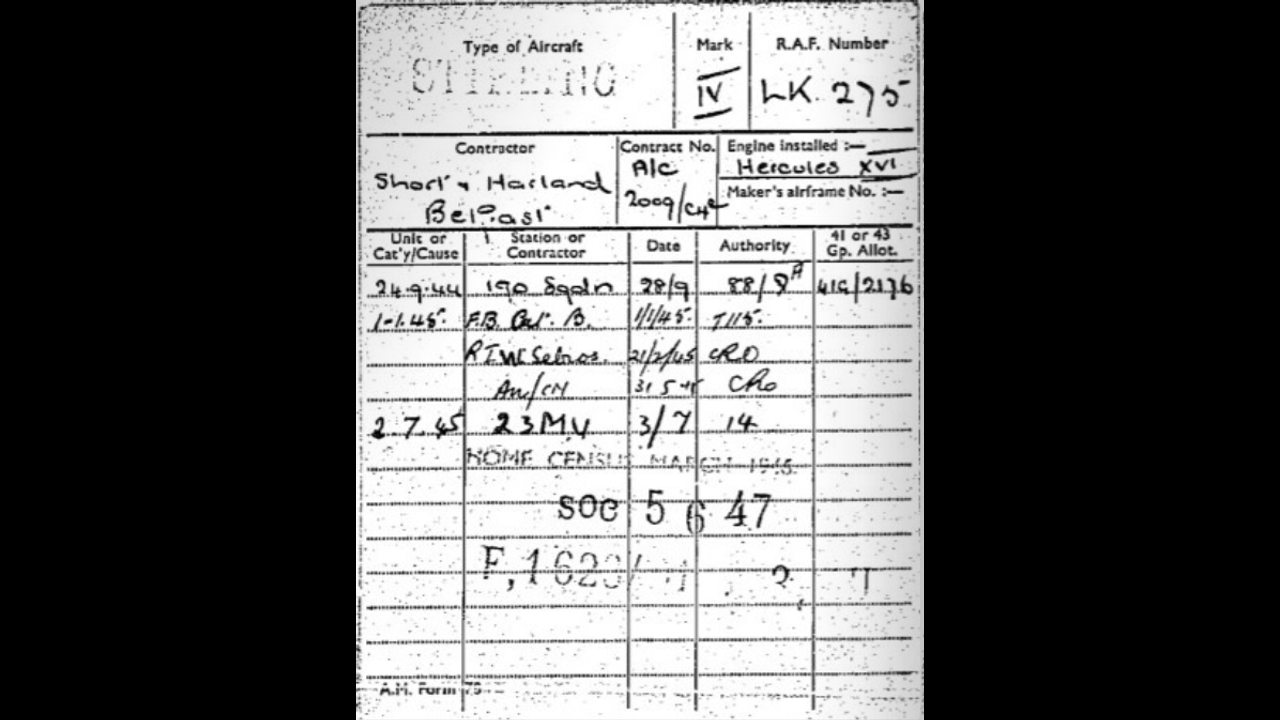 Type of Aircraft Mark R.A.F. Number
STIRLING IV LK. 275
Contractor Contract No. Engine installed :—
Short & Harland A/C Hercules XVI
Belfast 2009/C4c Maker's airframe No. :—
Unit or Station or Date Authority 41 or 43
Cat'y/Cause Contractor Gp. Allot.
24.9.44 190 Sqdn 28/9 88/8A 41G/2176
1-1.45. F.B. Cat. B. 1/1/45. 7115.
21/2/45 CRD
31 5 45
2.7.45 23 MU 3/7 14
HOME CENSUS MARCH 1946
SOC 5 6 47
F,1623/
A.M. Form 78